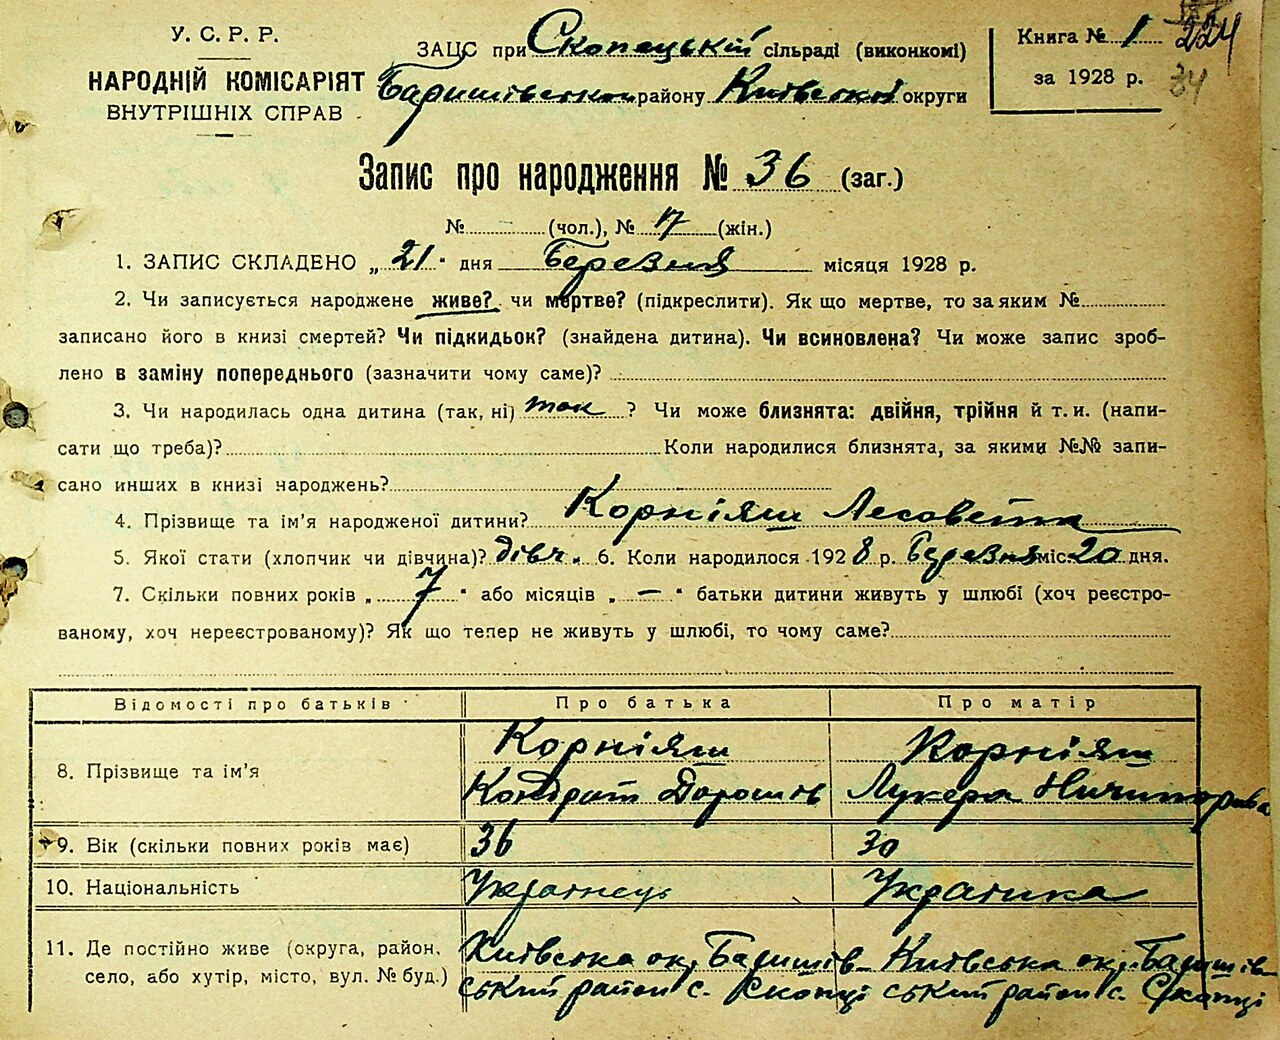 У. С. Р. Р.
НАРОДНІЙ КОМІСАРІЯТ
ВНУТРІШНІХ СПРАВ
ЗАЦС при Скопецькій сільраді (виконкомі)
Баришівського району Київської округи
Книга № 1
за 1928 р.
224
34
Запис про народження № 36 (заг.)
№ (чол.), № 17 (жін.)
1. ЗАПИС СКЛАДЕНО „ 21 " дня Березня місяця 1928 р.
2. Чи записується народжене живе? чи мертве? (підкреслити). Як що мертве, то за яким №
записано його в книзі смертей? Чи підкидьок? (знайдена дитина). Чи всиновлена? Чи може запис зроб-
лено в заміну попереднього (зазначити чому саме)?
3. Чи народилась одна дитина (так, ні) так ? Чи може близнята: двійня, трійня й т. и. (напи-
сати що треба)? Коли народилися близнята, за якими №№ запи-
сано инших в книзі народжень?
4. Прізвище та ім'я народженої дитини? Корніяш Лесовета
5. Якої стати (хлопчик чи дівчина)? дівч. 6. Коли народилося 1928 р. Березня міс 20 дня.
7. Скільки повних років „ 7 " або місяців „ — " батьки дитини живуть у шлюбі (хоч реєстро-
ваному, хоч нереєстрованому)? Як що тепер не живуть у шлюбі, то чому саме?
Відомості про батьків Про батька Про матір
8. Прізвище та ім'я Корніяш Корніяш
Кондрат Дорошів Лукера Ничипорівна
9. Вік (скільки повних років має) 36 30
10. Національність Українець Українка
11. Де постійно живе (округа, район, Київська ок, Баришів- Київська ок, Баришів-
село, або хутір, місто, вул. № буд.) ський район с. Скопці ський район с. Скопці